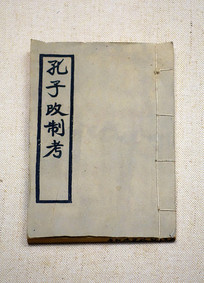 孔子改制考